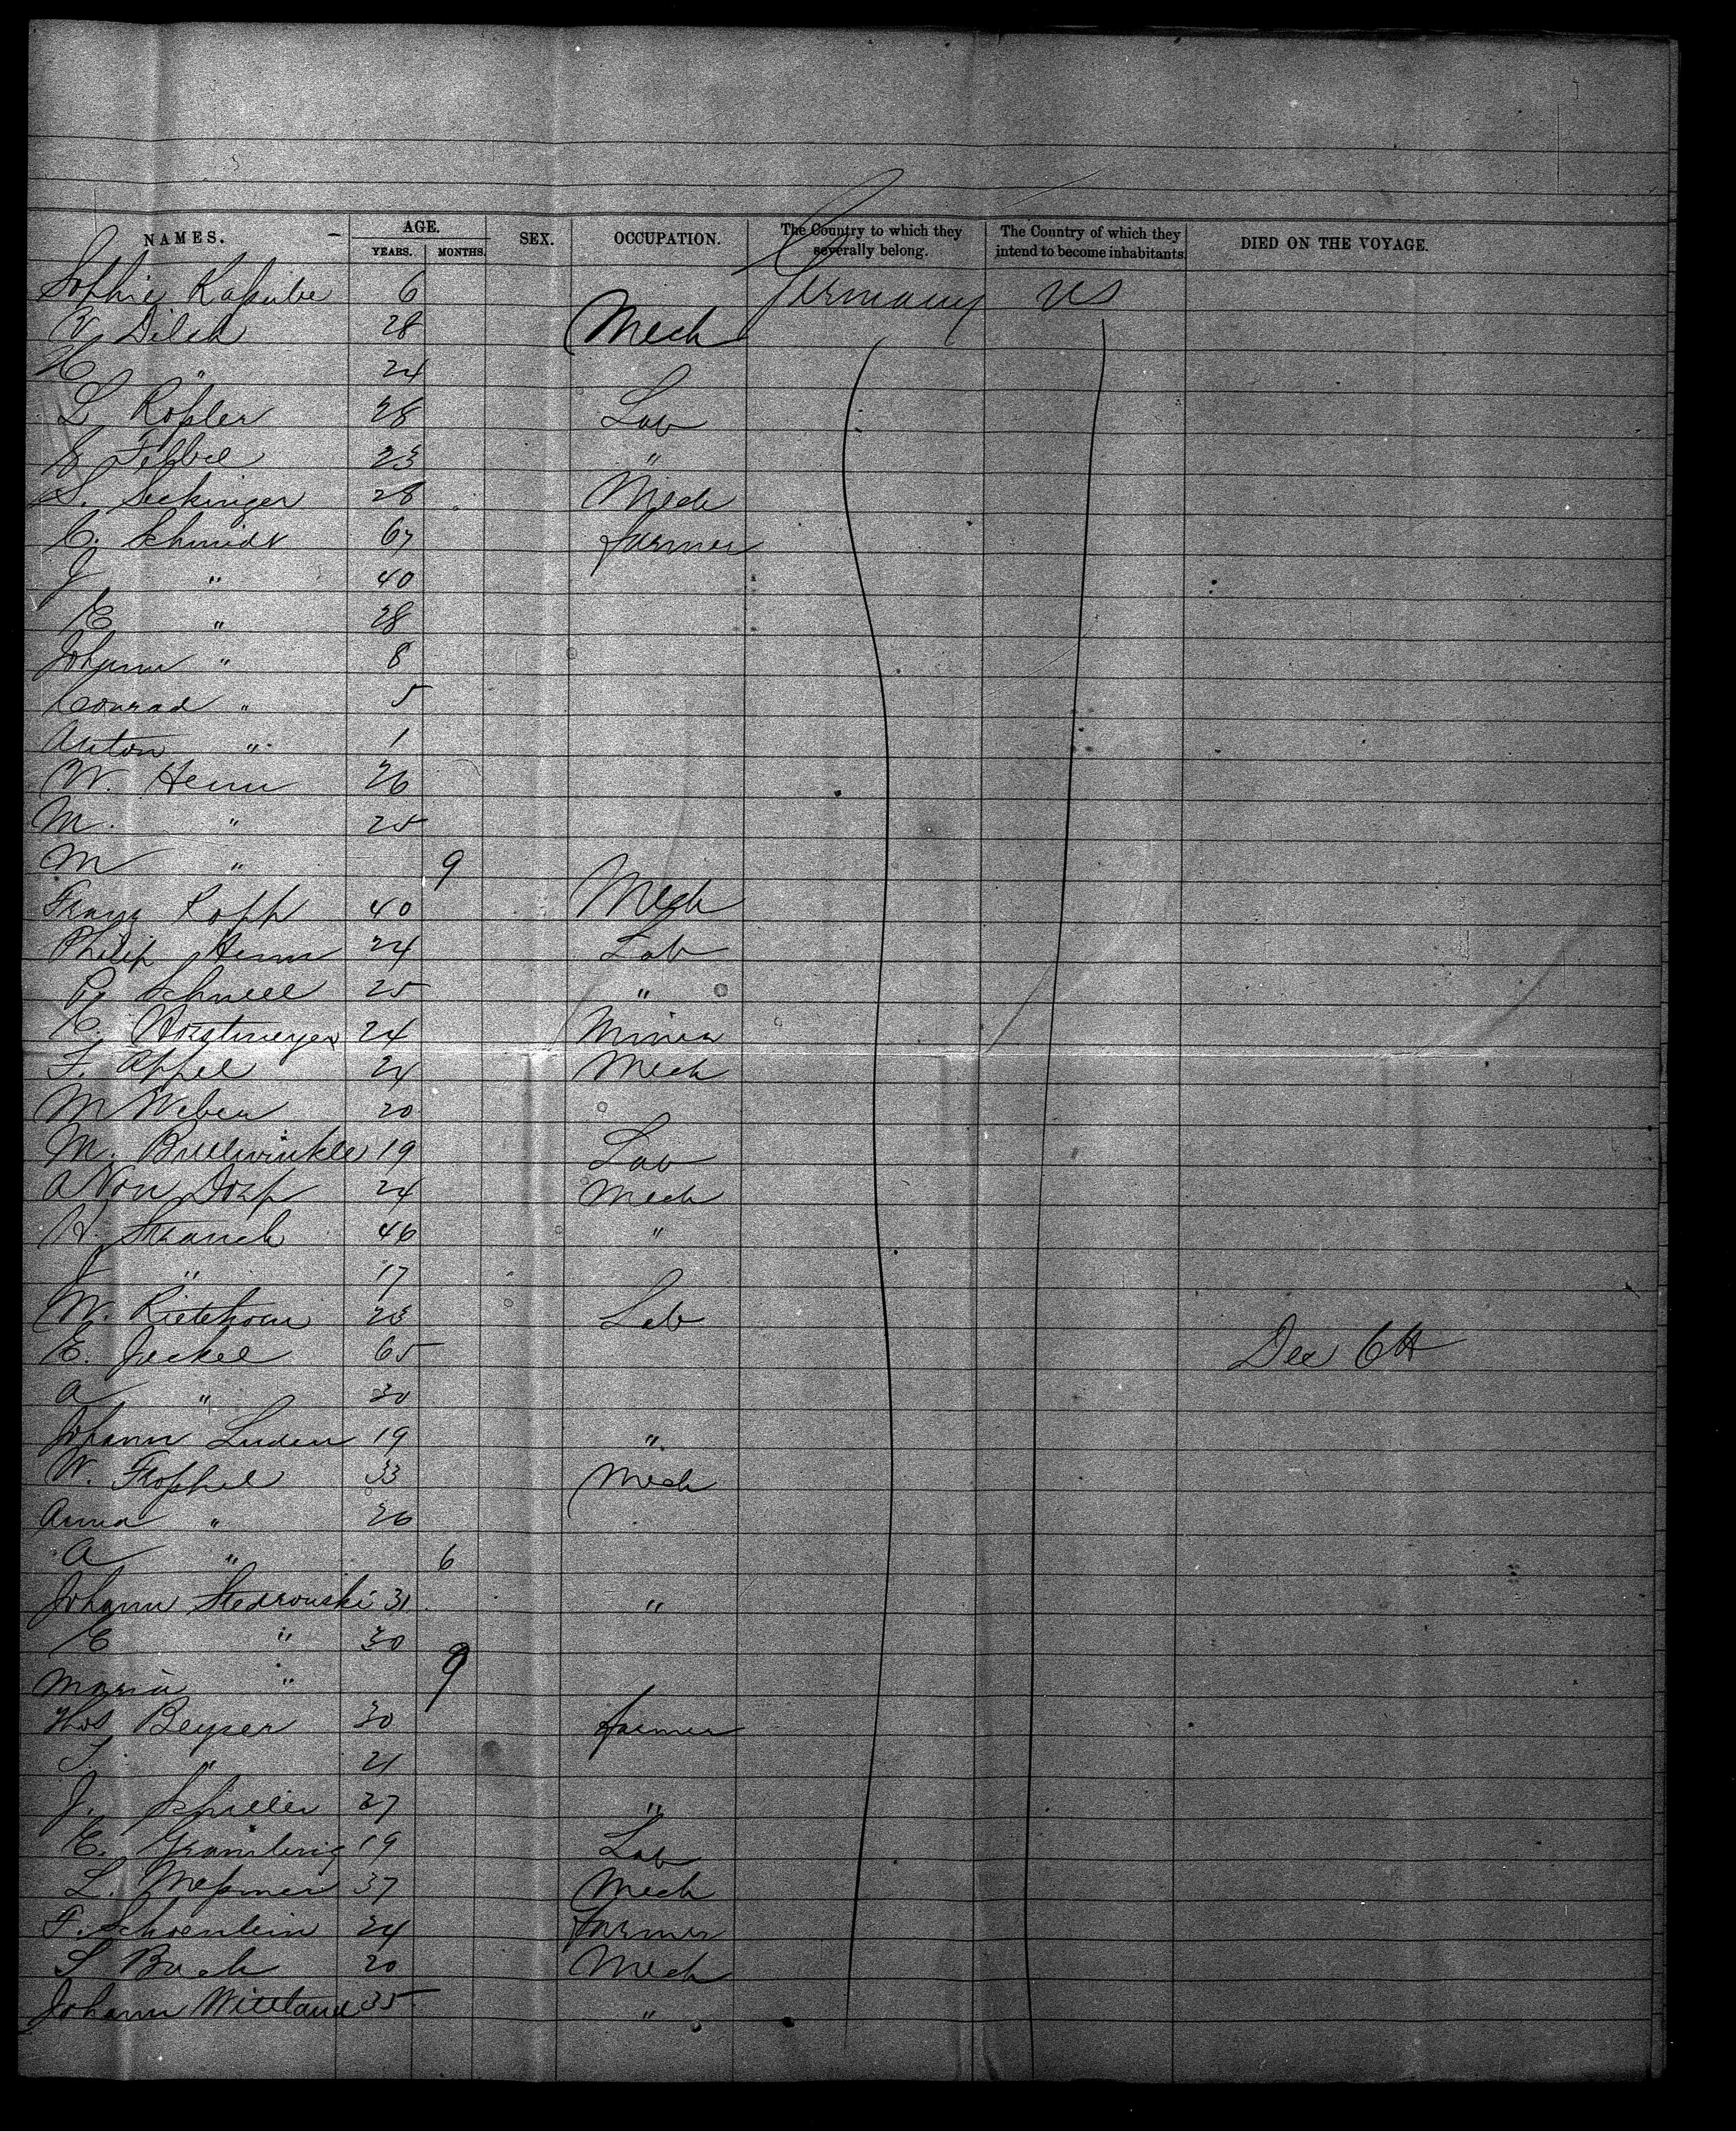 NAMES. AGE. SEX. OCCUPATION. The Country to which they severally belong. The Country of which they intend to become inhabitants. DIED ON THE VOYAGE.
YEARS. MONTHS.
Sophie 6 Germany US
Dilch 28 Mech
H " 24
L Roßler 28 Lab
23 "
S. Seckinger 28 Mech
C. Schmidt 67 farmer
J " 40
E " 28
Johann " 8
Conrad " 5
Anton " 1
W. Henn 26
M. " 25
M " 9
Franz Kopp 40 Mech
Philip Henn 24 Lab
Schnell 25 "
C. Horstmeyer 24 Miner
F. Appel 24 Mech
M Weber 20
M. Bullwinkle 19 Lab
A Von Dorp 24 Mech
H. Strauch 46 "
J " 17
W. 23 Lab
E. Jeckel 65 Dec 6th
A " 30
Johann Luden 19 "
W. 33 Mech
Anna " 26
A " 6
Johann Stedronski 31 "
E " 30
Maria " 9
Thos Beyser 30 farmer
T. " 21
J. 27 "
E. Gramling 19 Lab
L. Meßmer 37 Mech
F. Schoenlein 24 Farmer
S Bach 20 Mech
Johann 35 "